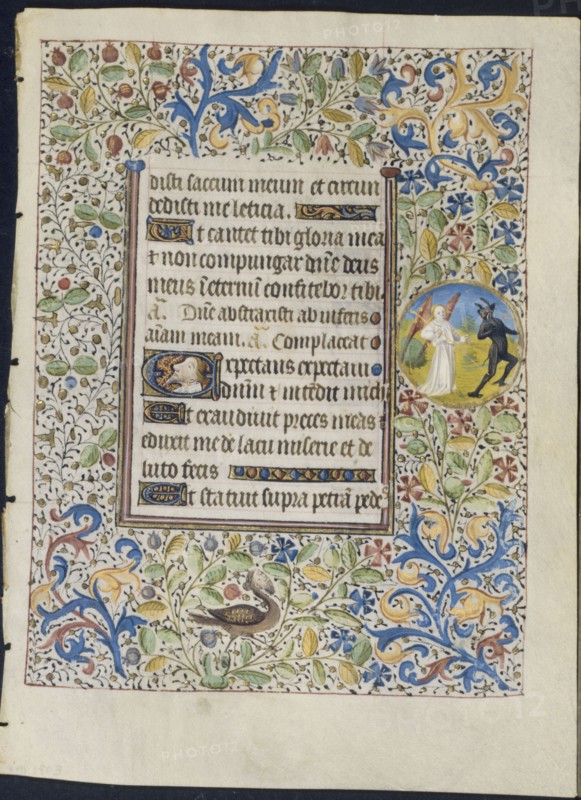 disti saccum meum et circun
dedisti me leticia.
Et cantet tibi gloria mea
et non compungar dñe deus
meus ĩ eternũ confitebor tibi.
A. Dñe abstraxisti ab inferis
aĩam meam. A. Complaceat
Expectans expectaui
dñm et intẽdit michi
Et exaudiuit preces meas et
eduxit me de lacu miserie et de
luto fecis
Et statuit supra petrã pede
PHOTO12
PHOTO12
PHOTO12